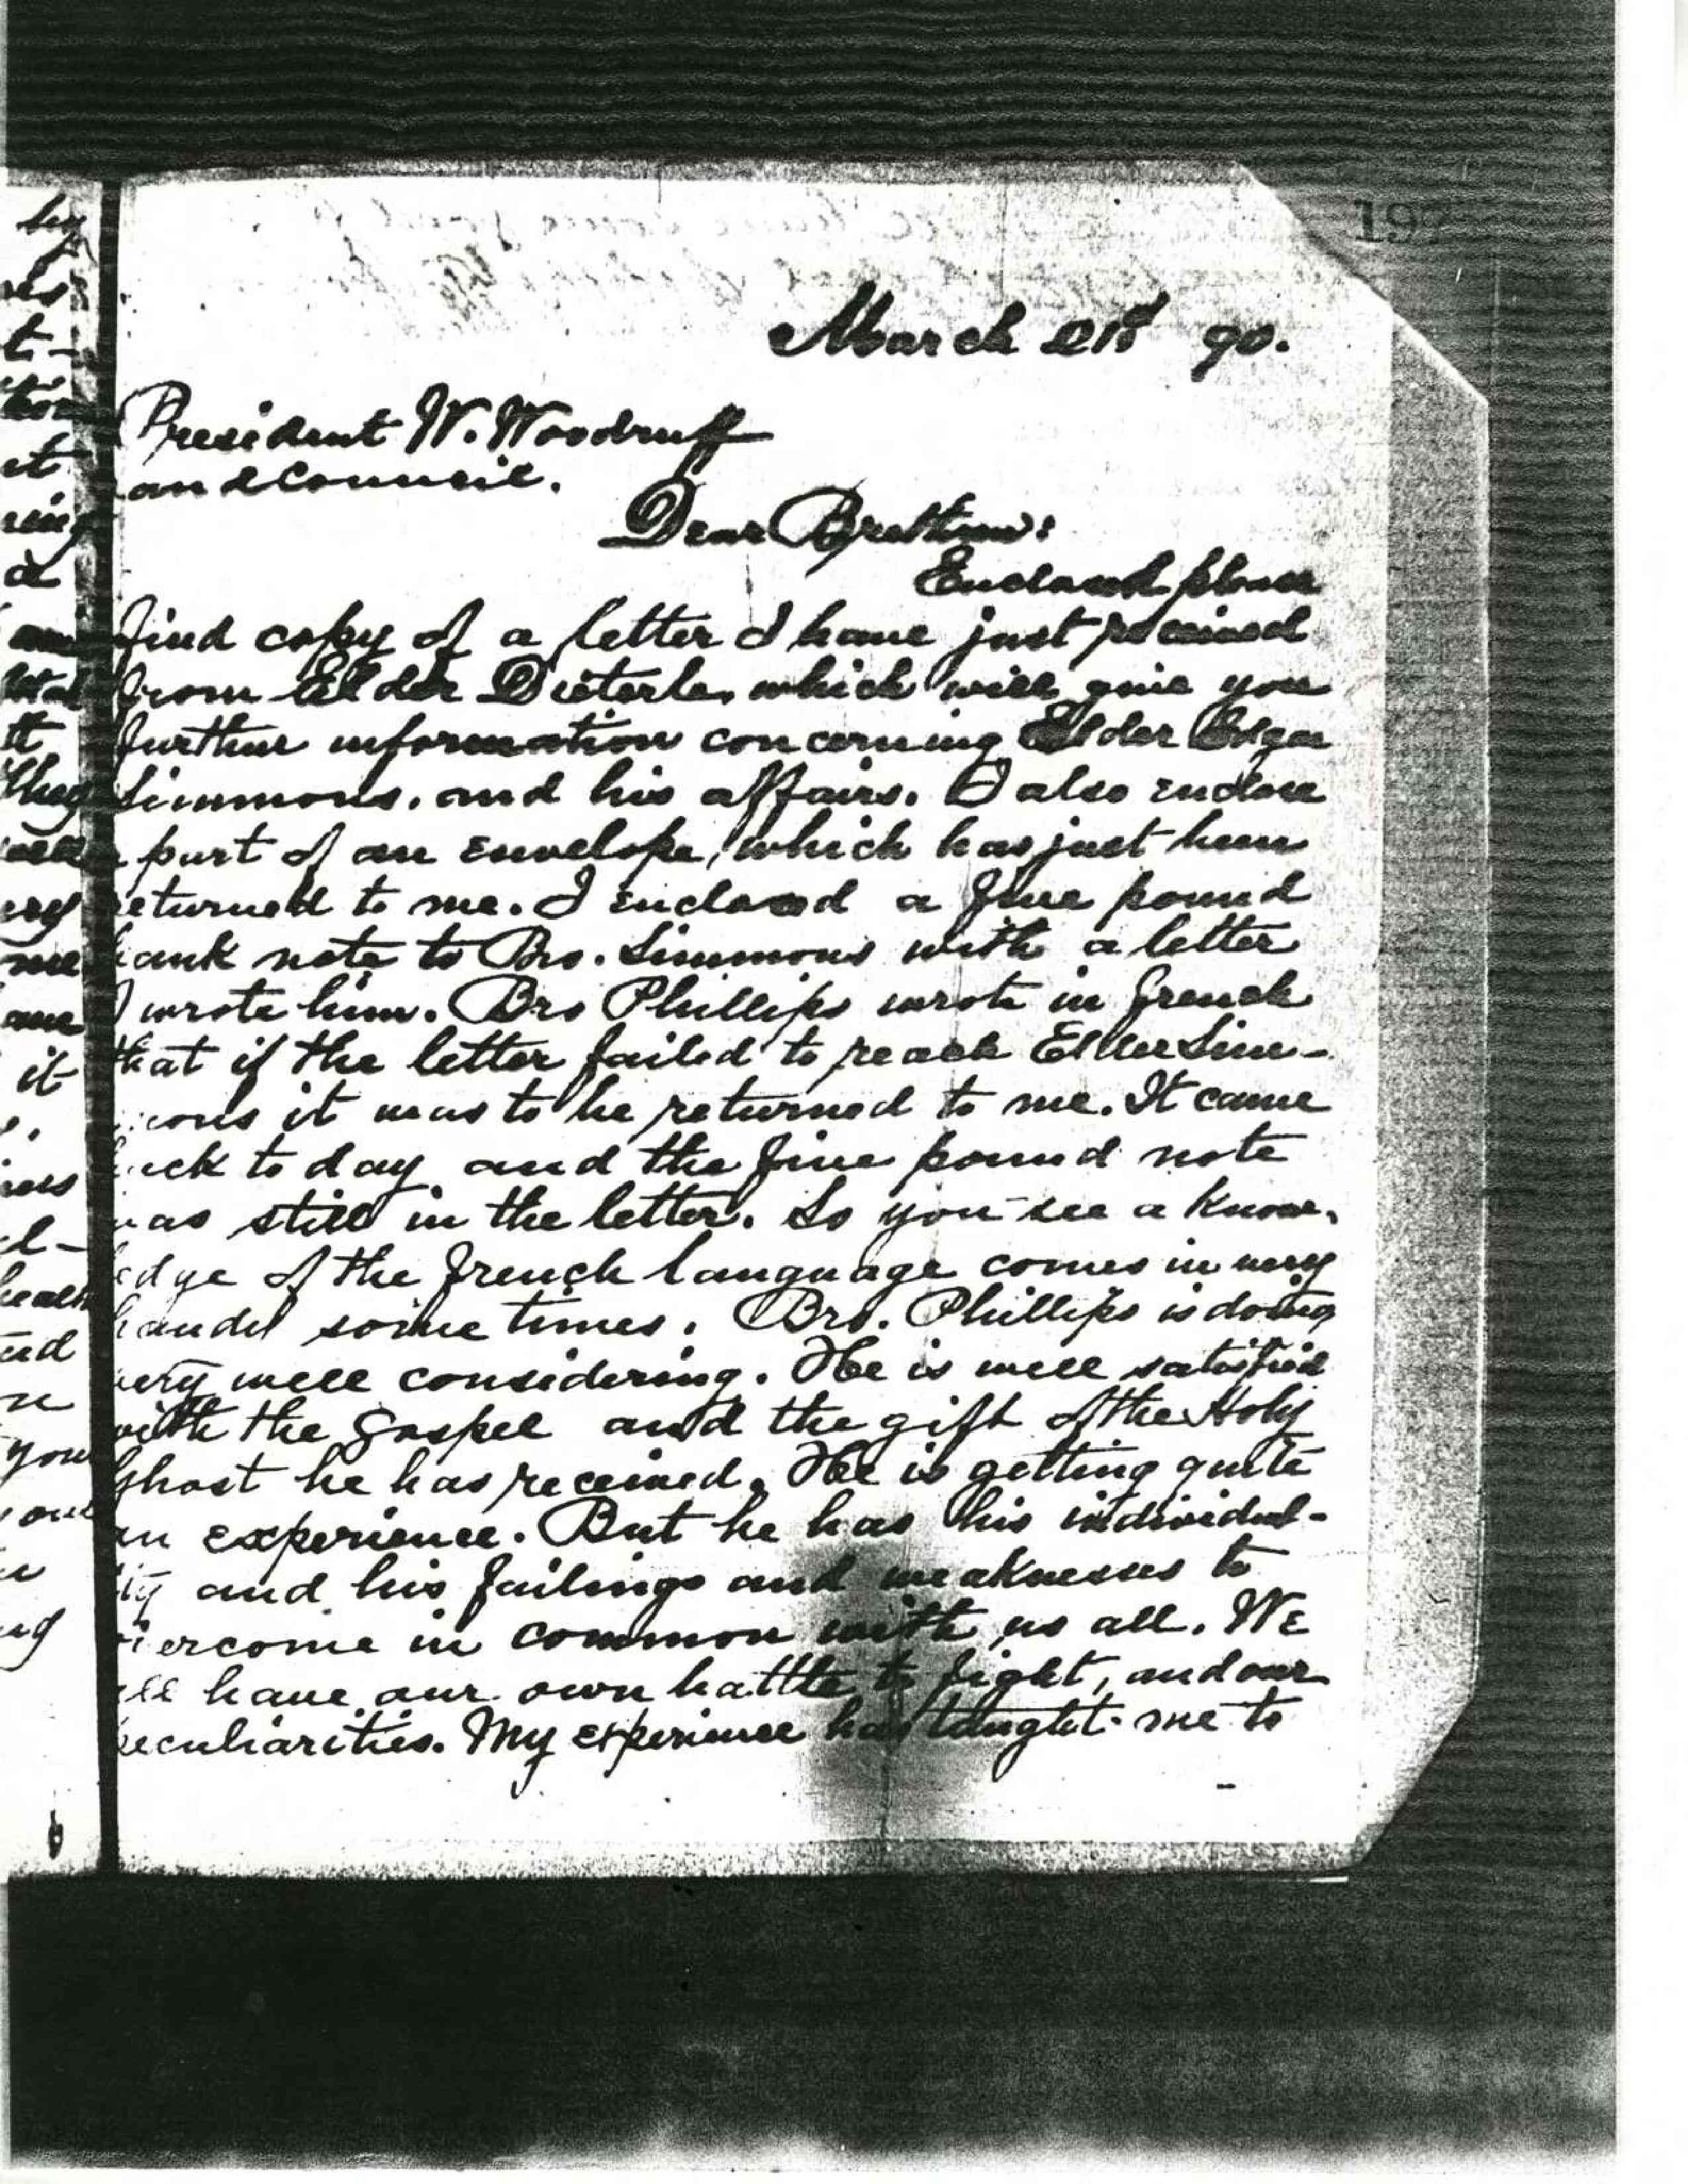 197
March 21st 90.
President W. Woodruff
and Council.
Dear Brethren:
Enclosed please
find copy of a letter I have just received
from Elder Dieterle, which will give you
further information concerning Elder Edgar
Simmons, and his affairs. I also enclose
a part of an Envelope, which has just been
returned to me. I enclosed a five pound
bank note to Bro. Simmons with a letter
I wrote him. Bro Phillips wrote in French
that if the letter failed to reach Elder Sim-
mons it was to be returned to me. It came
back to day and the five pound note
was still in the letter. So you see a know-
ledge of the French language comes in very
handy some times. Bro. Phillips is doing
very well considering. He is well satisfied
with the Gospel and the gift of the Holy
Ghost he has received. He is getting quite
an experience. But he has his individual-
ity and his failings and weaknesses to
overcome in common with us all. We
all have our own battle to fight, and our
peculiarities. My experience has taught me to